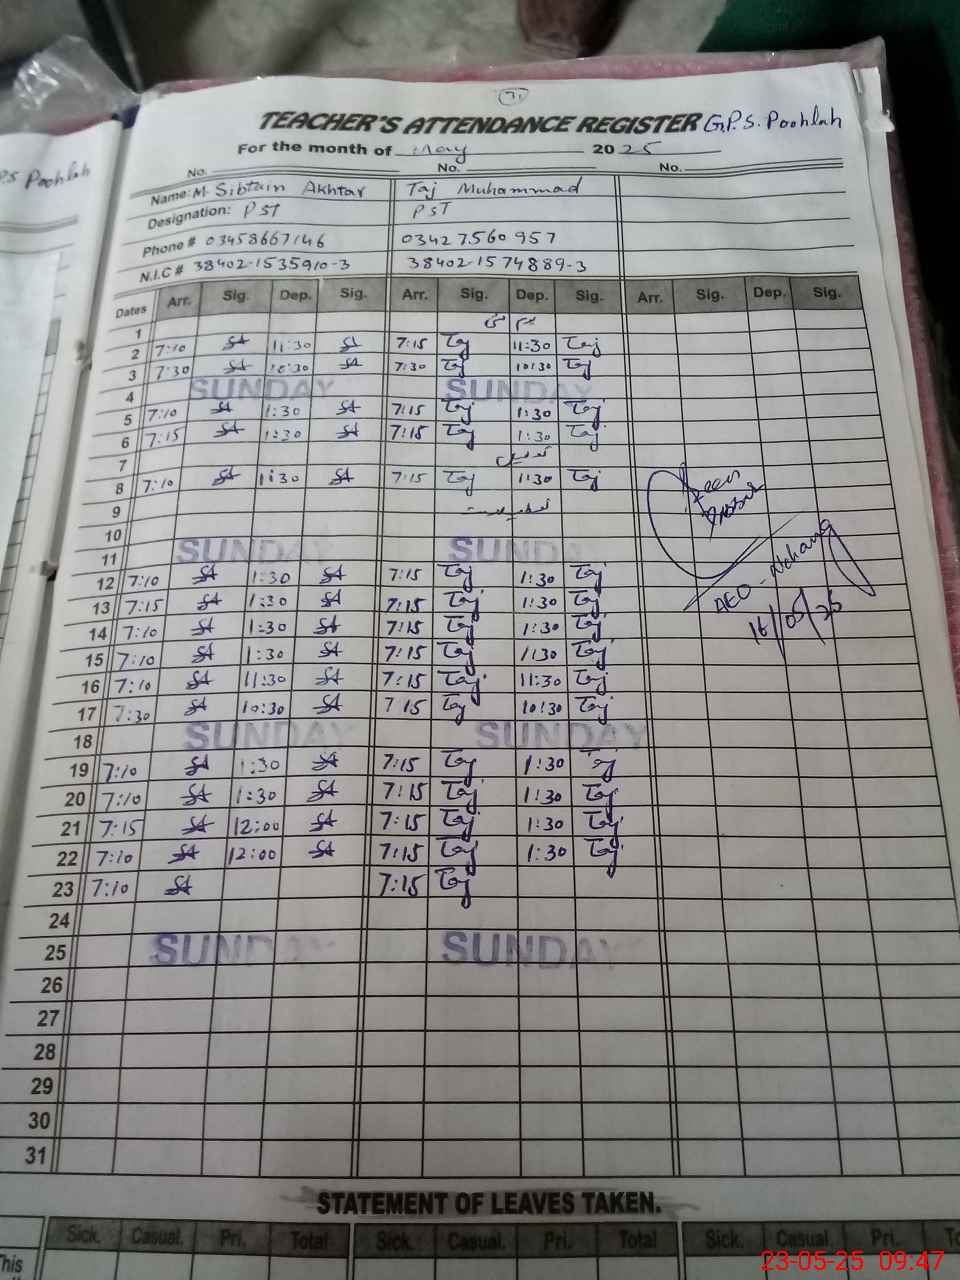 7.
TEACHER'S ATTENDANCE REGISTER G.P.S. Poohlah
For the month of May 2025
P.S Poohlah
No. No. No.
Name: M. Sibtain Akhtar Taj Muhammad
Designation: PST PST
Phone # 03458667146 03427560957
N.I.C # 38402-1535910-3 38402-1574889-3
Dates Arr. Sig. Dep. Sig. Arr. Sig. Dep. Sig. Arr. Sig. Dep. Sig.
1
2 7:10 SA 11:30 SA 7:15 Taj 11:30 Taj
3 7:30 SA 10:30 SA 7:30 Taj 10:30 Taj
4 SUNDAY SUNDAY
5 7:10 SA 1:30 SA 7:15 Taj 1:30 Taj
6 7:15 SA 1:30 SA 7:15 Taj 1:30 Taj
7 تعطیل
8 7:10 SA 1:30 SA 7:15 Taj 1:30 Taj
9
10
11 SUNDAY SUNDAY
12 7:10 SA 1:30 SA 7:15 Taj 1:30 Taj
13 7:15 SA 1:30 SA 7:15 Taj 1:30 Taj
14 7:10 SA 1:30 SA 7:15 Taj 1:30 Taj
15 7:10 SA 1:30 SA 7:15 Taj 1:30 Taj
16 7:10 SA 11:30 SA 7:15 Taj 11:30 Taj
17 7:30 SA 10:30 SA 7:15 Taj 10:30 Taj
18 SUNDAY SUNDAY
19 7:10 SA 1:30 SA 7:15 Taj 1:30 Taj
20 7:10 SA 1:30 SA 7:15 Taj 1:30 Taj
21 7:15 SA 12:00 SA 7:15 Taj 1:30 Taj
22 7:10 SA 12:00 SA 7:15 Taj 1:30 Taj
23 7:10 SA 7:15 Taj
24
25 SUNDAY SUNDAY
26
27
28
29
30
31
AEO - Nehang
16/05/25
STATEMENT OF LEAVES TAKEN.
Sick. Casual. Pri. Total Sick. Casual. Pri. Total Sick. Casual. Pri.
This
23-05-25 09:47